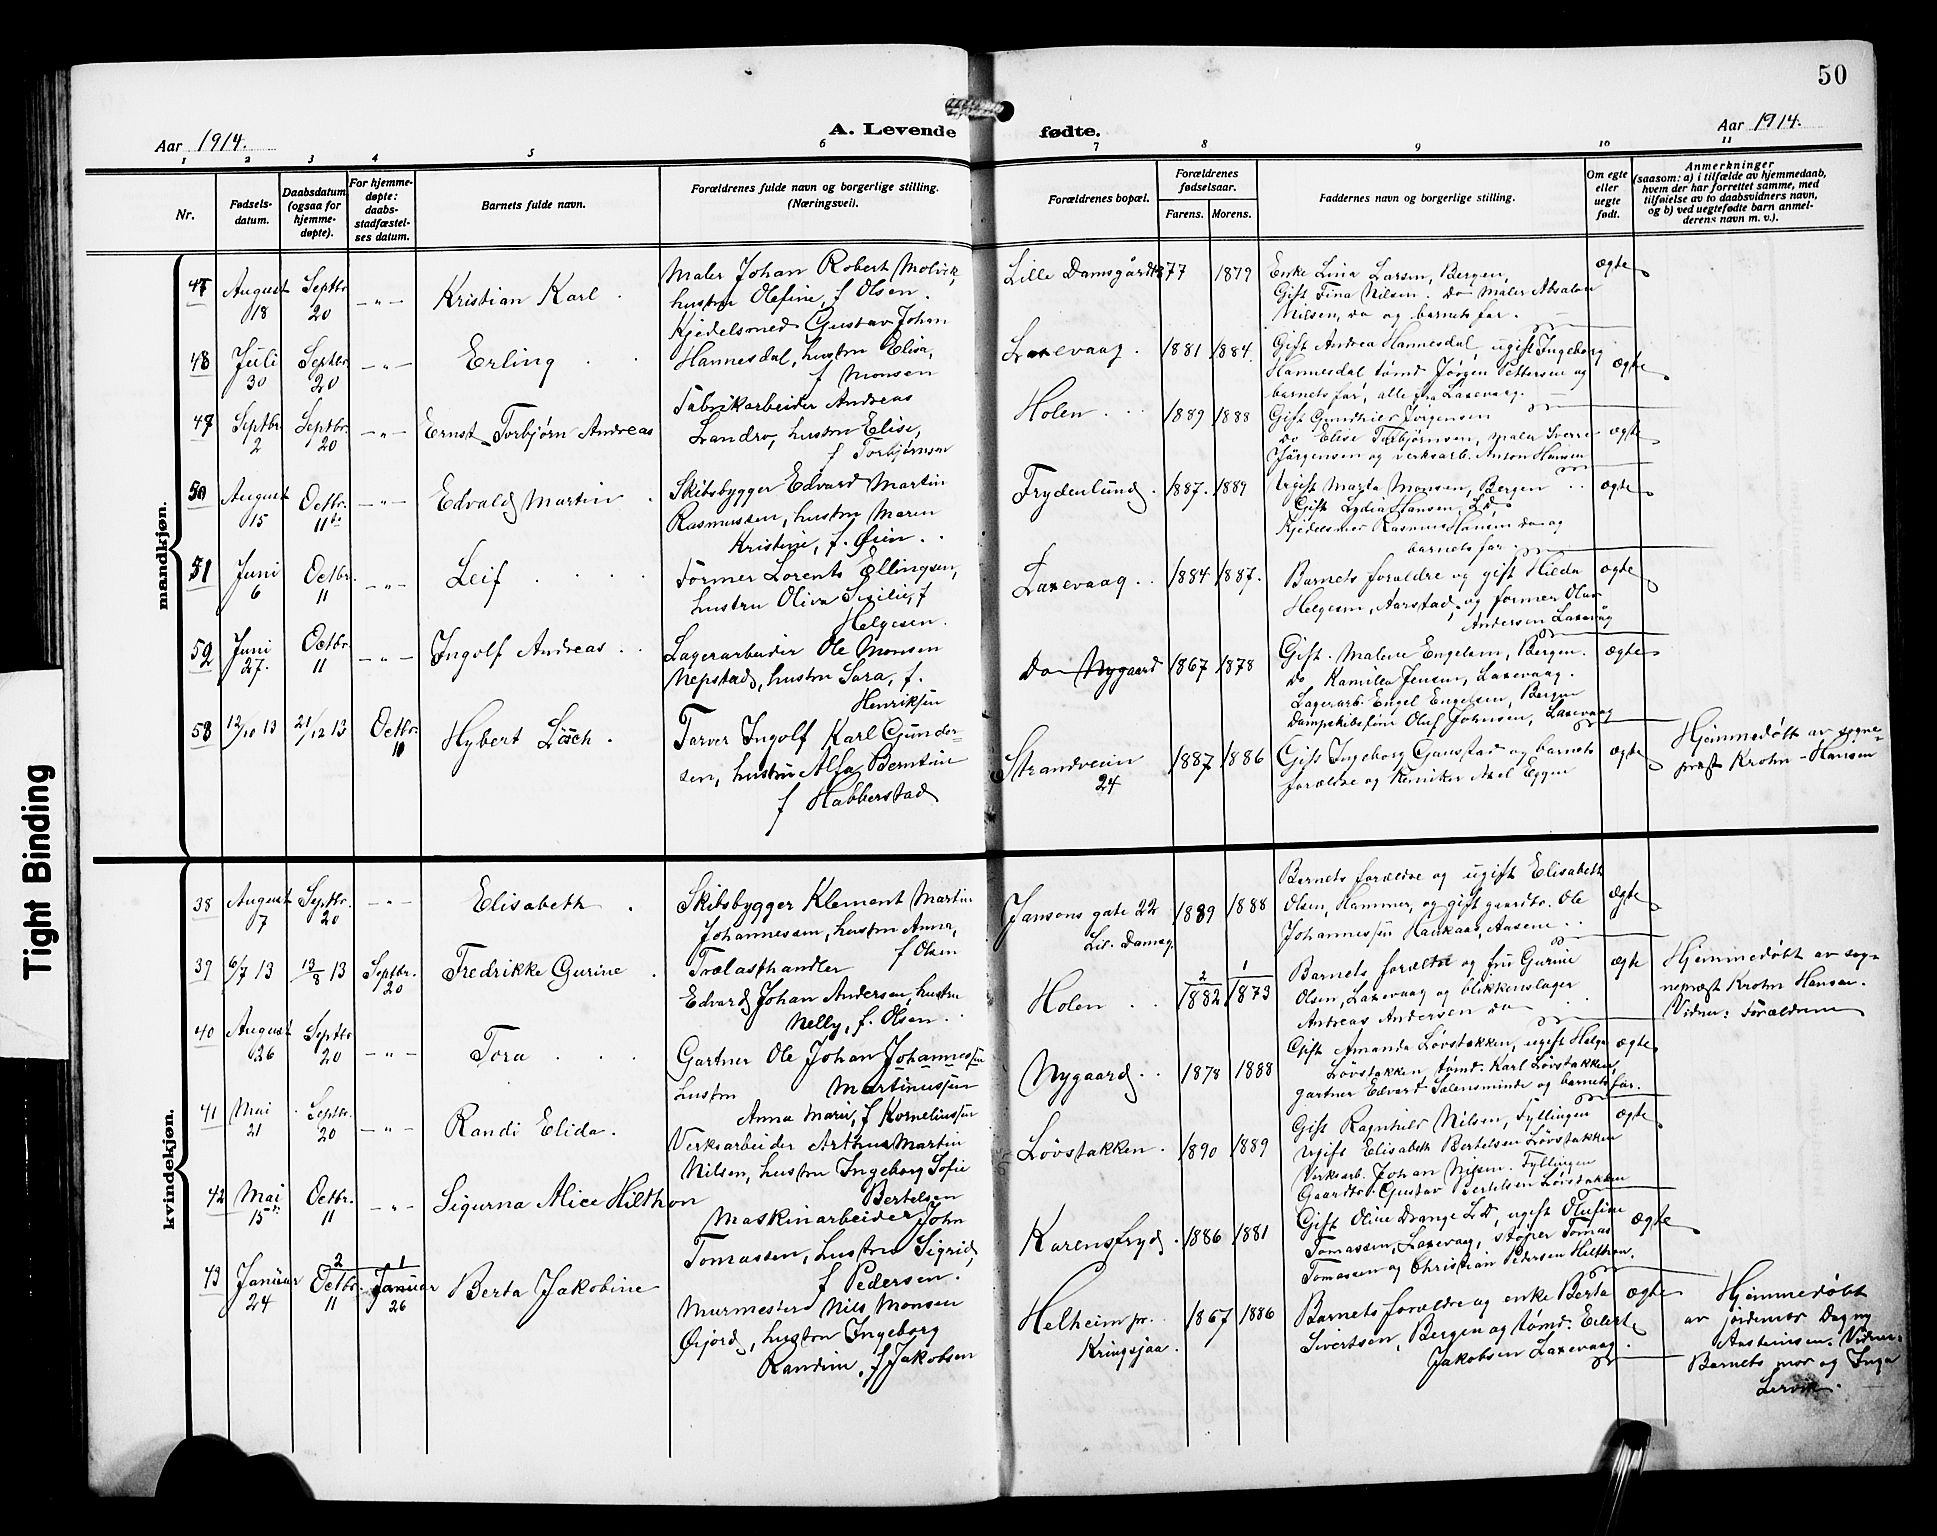 50
Aar 1914.
A. Levende fødte.
Aar 1914.
1 2 3 4 5 6 7 8 9 10 11
Nr.
Fødsels-
datum.
Daabsdatum
(ogsaa for
hjemme-
døpte).
For hjemme-
døpte:
daabs-
stadfæstel-
ses datum.
Barnets fulde navn.
Forældrenes fulde navn og borgerlige stilling.
(Næringsvei).
Forældrenes bopæl.
Forældrenes
fødselsaar.
Farens. Morens.
Faddernes navn og borgerlige stilling.
Om egte
eller
uegte
født.
Anmerkninger
(saasom: a) i tilfælde av hjemmedaab,
hvem der har forrettet samme, med
tilføielse av to daabsvidners navn,
og b) ved uegtefødte barn anmel-
derens navn m. v.).
mandkjøn.
47 August 18 Septbr. 20 -"- Kristian Karl
Maler Johan Robert Molvik,
hustru Olefine, f. Olsen.
Lille Damsgård 1877 1879
Enke Lina Larsen, Bergen,
Gift Tina Nilsen. do Maler Absalon
Nilsen, do og barnets far.
ægte
48 Juli 30 Septbr. 20 -"- Erling
Kjedelsmed Gustav Johan
Hannesdal, hustru Elisa,
f Monsen
Laxevaag. 1881 1884.
Gift Andrea Hannesdal, ugift Ingeborg
Hannesdal tømd Jørgen Pettersen og
barnets far, alle fra Laxevaag.
ægte
49 Septbr. 2 Septbr. 20 -"- Ernst Torbjørn Andreas
Fabrikarbeider Andreas
Landro, hustru Elise,
f Torbjørnsen
Holen 1889 1888
Gift Jørgensen
do Elise Torbjørnsen, maler Sverre
Jørgensen og verksarb. Anton Hansen
ægte
50 August 15 Octbr. 11te -"- Edvald Martin
Skibsbygger Edvard Martin
Rasmussen, hustru Maren
Kristine, f. Øien
Frydenlund. 1887. 1889
Ugift Marta Monsen, Bergen
Gift Lydia Hansen, L.d,
Kjedelsmed Rasmus Hansen do og
barnets far.
ægte
51 Juni 6 Octbr. 11 -"- Leif
Former Lorents Ellingsen,
hustru Oliva Sesilie, f
Helgesen.
Laxevaag 1884 1887.
Barnets forældre og gift Hilda
Helgesen, Aarstad, og former Olav
Andersen Laxevåg
ægte
52 Juni 27. Octbr. 11 -"- Ingolf Andreas
Lagerarbeider Ole Monsen
Nepstad, hustru Sara, f.
Henriksen
Do Nygaard 1867 1878
Gift. Malene Engelsen, Bergen.
do Kamilla Jensen, Laxevaag.
Lagerarb. Engel Engelsen, Bergen
Oluf Johnsen, Laxevaag
ægte
53 12/10 13 21/12 13 Octbr. 18 Hybert Lösch
Farver Ingolf Karl Gunder-
sen, hustru Alfa Berntine
f Habberstad
Strandveien 24 1887 1886
Gift Ingeborg Gaustad og barnets
forældre og Kemiker Axel Egger
ægte
Hjemmedøbt av sogne-
præst Krohn-Hansen
kvindekjøn.
38 August 7 Septbr. 20 -"- Elisabeth
Skibsbygger Klement Martin
Johannessen, hustru Anna,
f Olsen
Jansons gate 22
Lil. Damsg. 1889 1888
Barnets forældre og ugift Elisabeth
Olsen, Hammer, og gift gaardbr. Ole
Johannessen Haukaas, Aasene
ægte
39 6/7 13 13/8 13 Septbr. 20 Fredrikke Gurine
Trælasthandler
Edvard Johan Andersen, hustru
Nelly, f. Olsen
Holen 2 1882 1 1873
Barnets forældre og fru Gurine
Olsen, Laxevaag og blikkenslager
Andreas Andersen do
ægte
Hjemmedøbt av sog-
nepræst Krohn Hansen.
Vidner: Forældrene
40 August 26 Septbr. 20 -"- Tora
Gartner Ole Johan Johannessen
hustru Martinussen
Anna Marie, f Korneliussen
Nygaard 1878 1888
Gift Amanda Løvstakken, ugift Helga
Løvstakken, tømd. Karl Løvstakken,
gartner Edvard Sælensminde og barnets far.
ægte
41 Mai 21 Septbr. 20 -"- Randi Elida.
Verksarbeider Arthur Martin
Nilsen, hustru Ingeborg Sofie
Bertelsen
Løvstakken. 1890 1889
Gift Ragnhild Nilsen, Fyllingen
Ugift Elisabeth Bertelsen Løvstakken
Verksarb. Johan Nilsen. Fyllingen
Gaardbr. Gustav Bertelsen Løvstakken
ægte
42 Mai 15 Octbr. 11 -"- Sigurna Alice Hilthon
Maskinarbeider John
Tomassen, hustru Sigrid,
f Pedersen.
Karensfryd. 1886 1881
Gift Oline Drange L.d, ugift Olufine
Tomassen, Laxevaag, støper Tomas
Tomassen og Christian Pedersen Hilthon.
ægte
43 Januar 24 2 Octbr. 11 1 Januar 26 Berta Jakobine
Murmester Nils Monsen
Øijord, hustru Ingeborg
Randine, f Jakobsen
Helheim pr.
Kringsjaa. 1867 1886
Barnets forældre og enke Berta
Sivertsen, Bergen og tømd. Eilert
Jakobsen Laxevaag.
ægte
Hjemmedøbt
av jordemor Dagny
Austeinsen. Vidner:
Barnets mor og Inga
Lervik.
Tight Binding